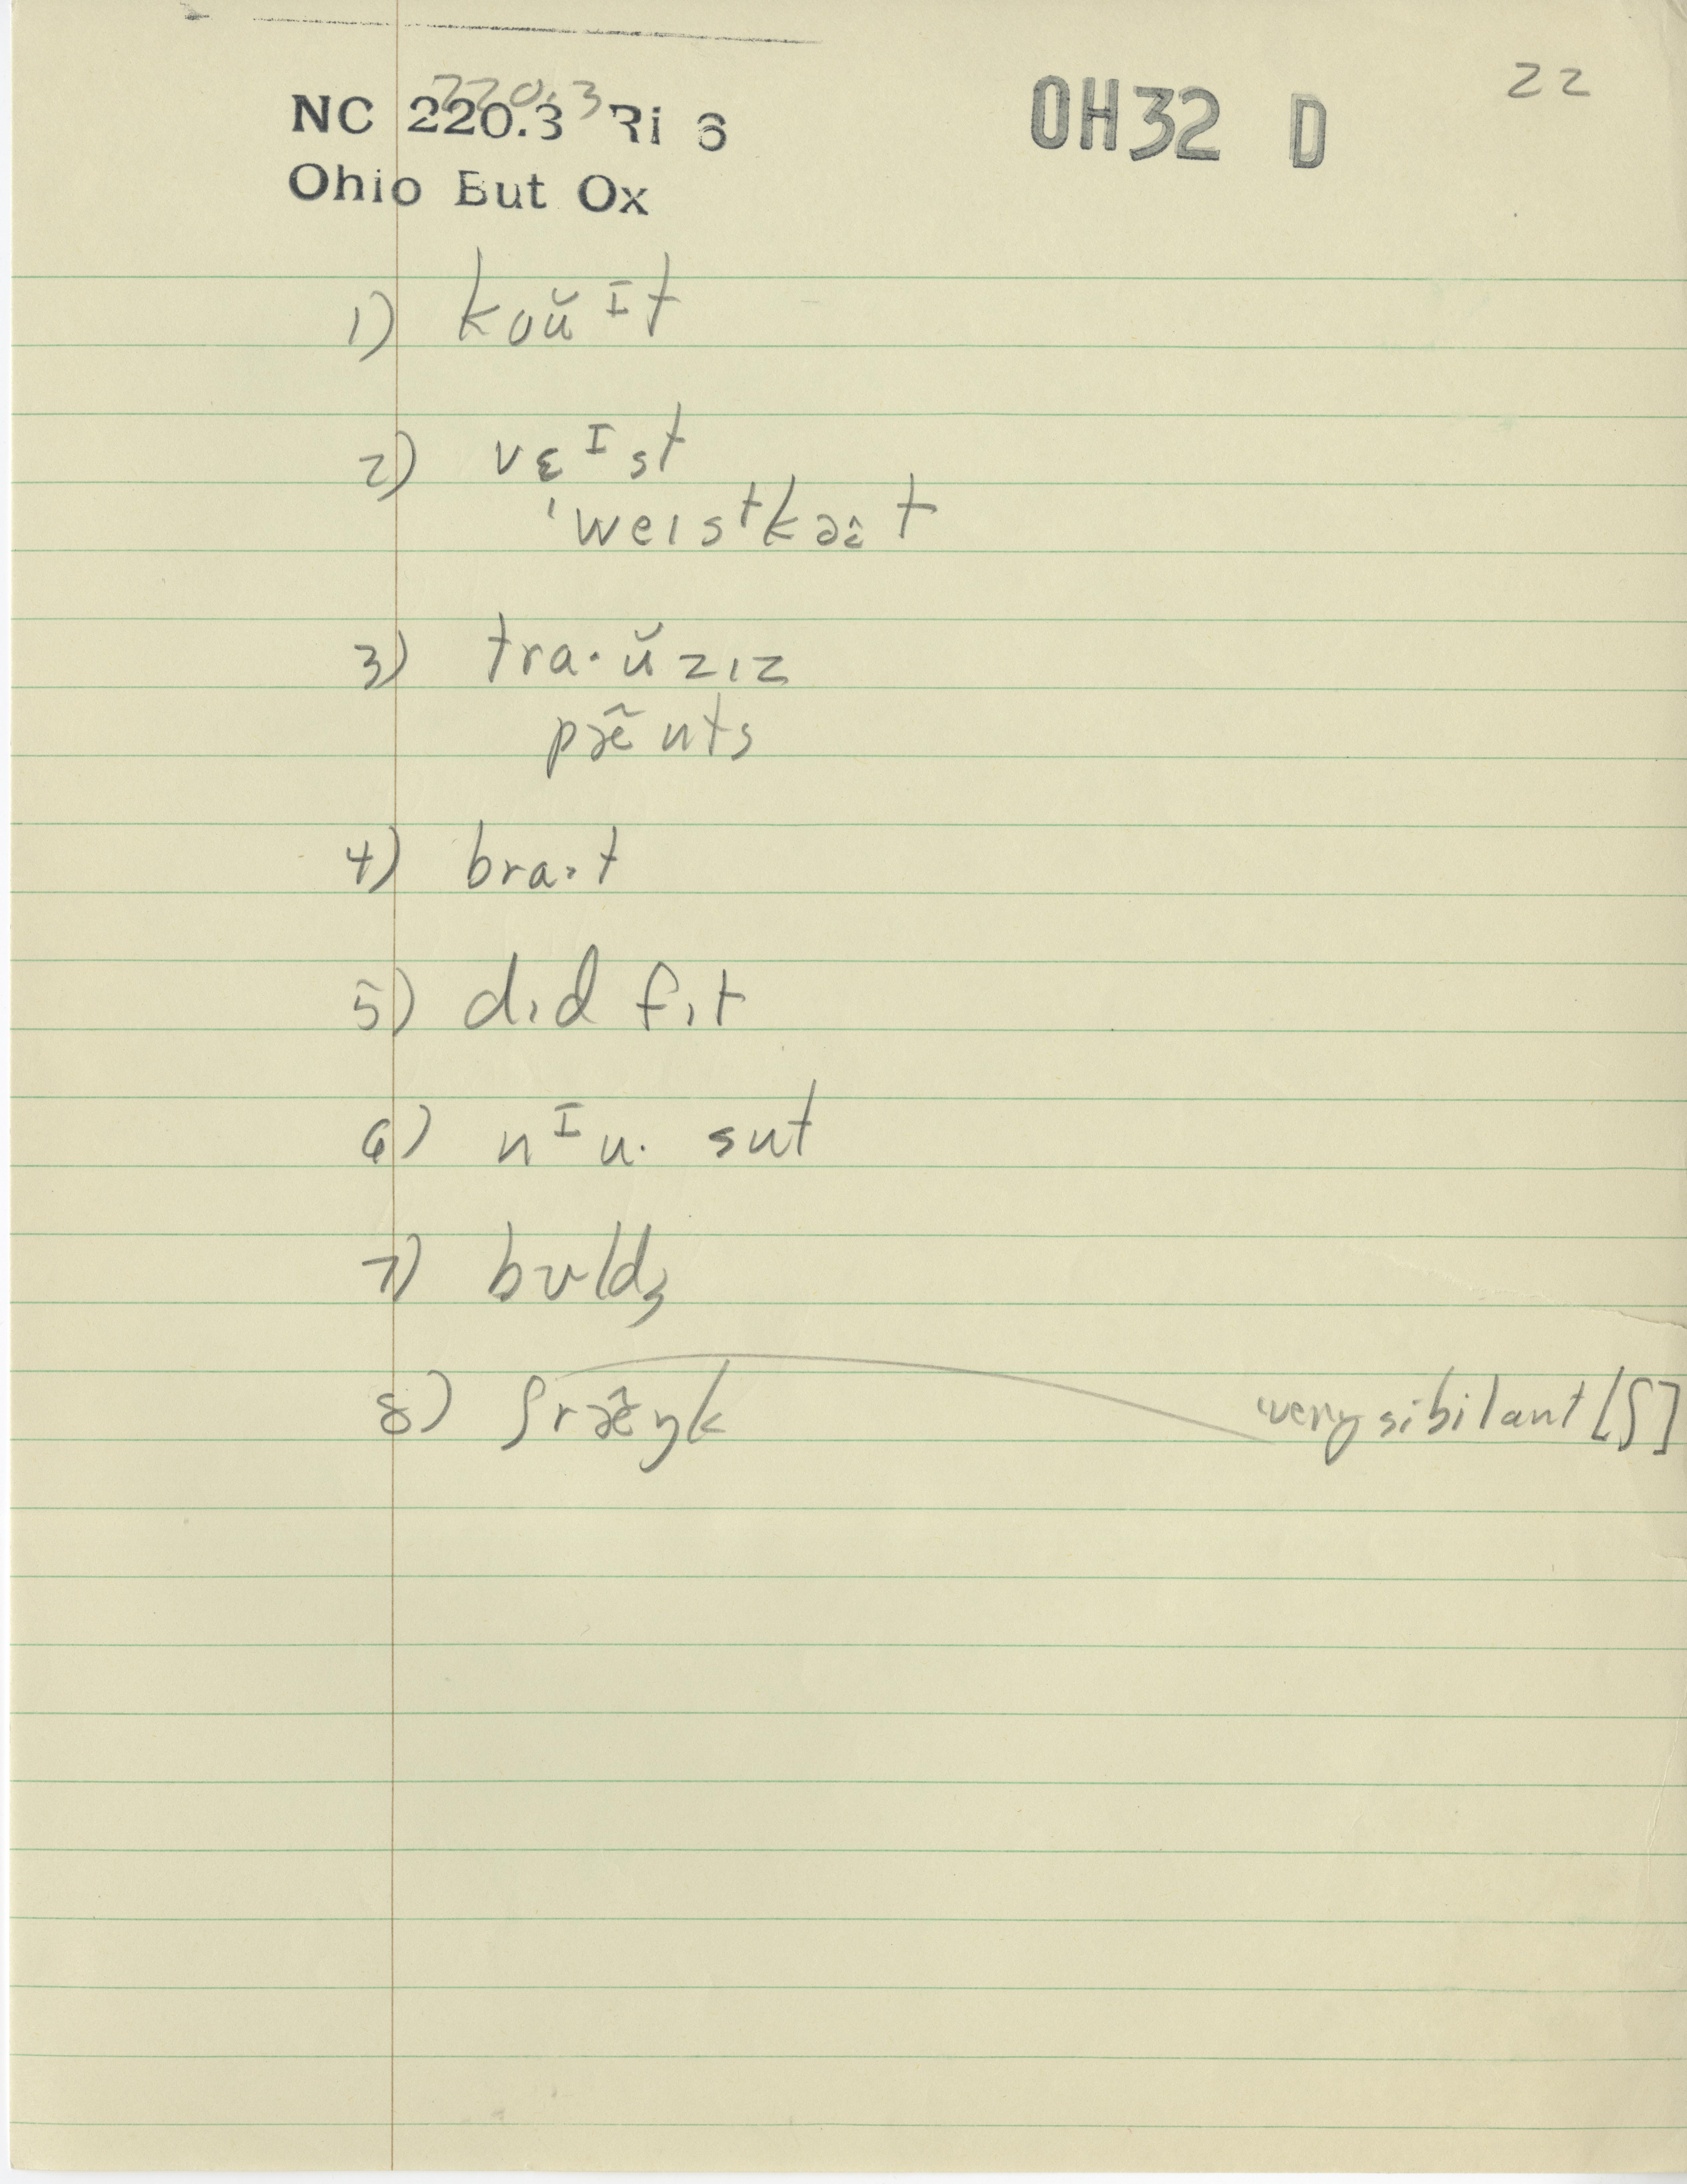 NC 220.3 Ri 6
220.3
OH32 D
22
Ohio But Ox
1) koŭᴵt
2) vɛᴵst
'weɪsᵗkəɛ̂t
3) tra·ŭzɪz
pæ̃nts
4) bra·t
5) dɪd fɪt
6) nᴵu· sut
7) bʌldʒ
8) ʃræ̃ŋk
very sibilant [ʃ]